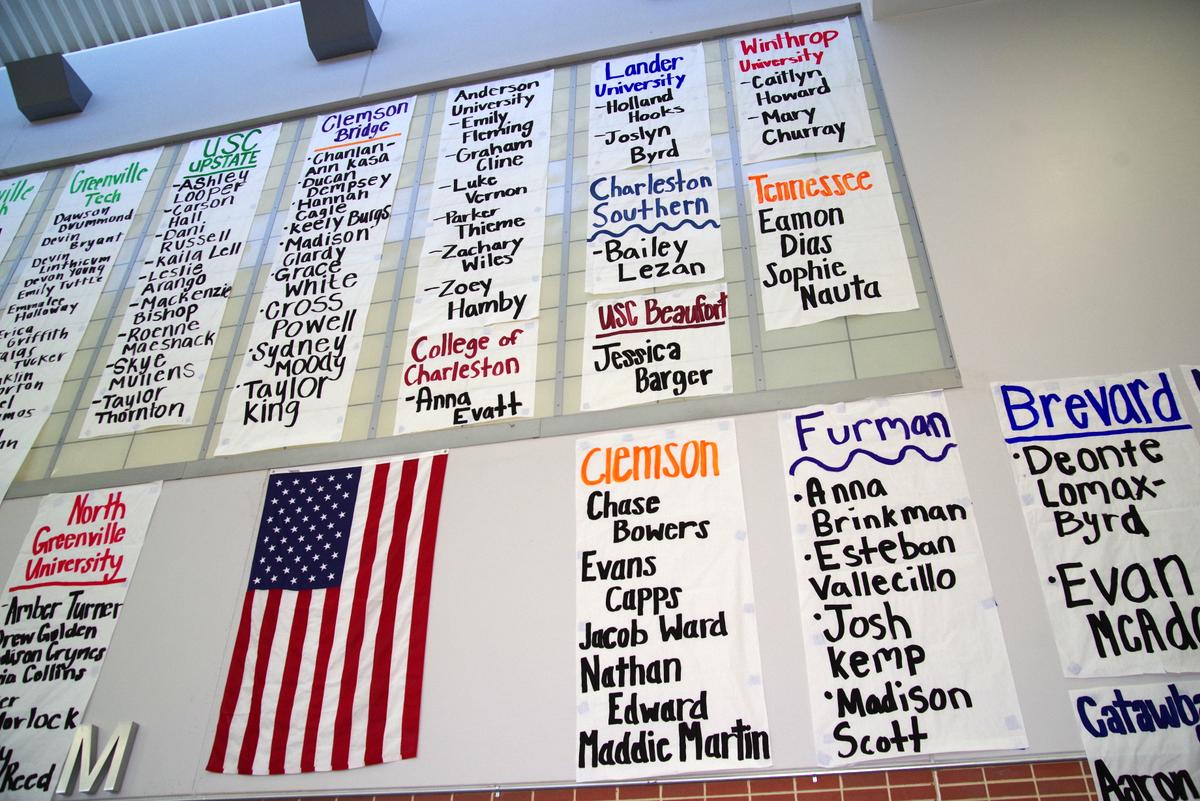 Greenville
Tech
Dawson
Drummond
Devin
Bryant
Devin
Linthicum
Devon Young
Emily Tuttle
Emmalee
Holloway
Griffith
Tucker
USC
UPSTATE
-Ashley
Looper
-Carson
Hall
-Dani
Russell
-Kaila Lell
-Leslie
Arango
-Mackenzie
Bishop
-Roenne
Maeshack
-Skye
Mullens
-Taylor
Thornton
Clemson
Bridge
·Chanlan-
Ann Kasa
·Ducan
Dempsey
·Hannah
Cagle
·Keely Burgs
·Madison
Clardy
·Grace
White
·Cross
Powell
·Sydney
Moody
·Taylor
King
Anderson
University
-Emily
Fleming
-Graham
Cline
-Luke
Vernon
-Parker
Thieme
-Zachary
Wiles
-Zoey
Hamby
College of
Charleston
-Anna
Evatt
Lander
University
-Holland
Hooks
-Joslyn
Byrd
Charleston
Southern
-Bailey
Lezan
USC Beaufort
Jessica
Barger
Winthrop
University
-Caitlyn
Howard
-Mary
Churray
Tennessee
Eamon
Dias
Sophie
Nauta
North
Greenville
University
-Amber Turner
Drew Golden
Grynes
Collins
Reed
M
Clemson
Chase
Bowers
Evans
Capps
Jacob Ward
Nathan
Edward
Maddie Martin
Furman
·Anna
Brinkman
·Esteban
Vallecillo
·Josh
Kemp
·Madison
Scott
Brevard
·Deonte
Lomax-
Byrd
·Evan
McAd
Catawba
Aaron